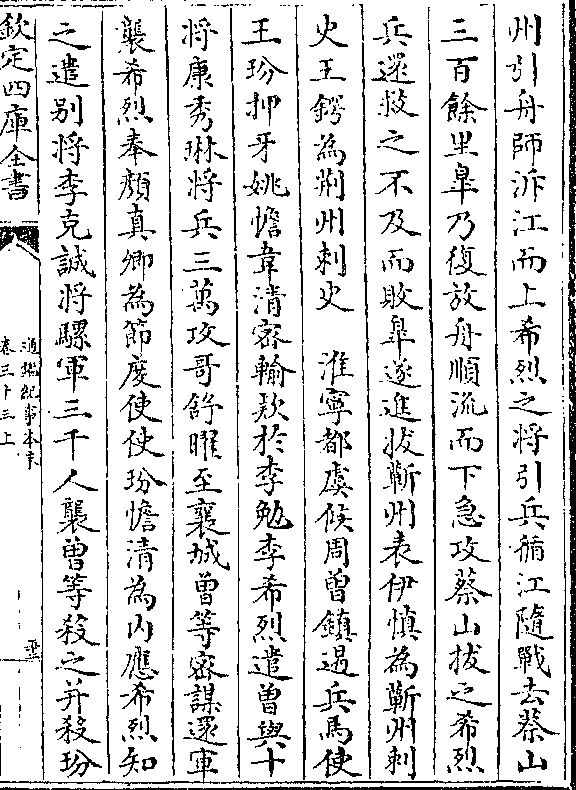 州引舟師泝江而上希烈之將引兵循江隨戰去蔡山
三百餘里臯乃復放舟順流而下急攻蔡山拔之希烈
兵還救之不及而敗臯遂進拔蘄州表伊慎為蘄州刺
史王鍔為荆州刺史　淮寧都虞候周曾鎮遏兵馬使
王玢押牙姚憺韋清密輸欵於李勉李希烈遣曾與十
将康秀琳將兵三萬攻哥舒曜至襄城曾等密謀還軍
襲希烈奉顔真卿為節度使使玢憺清為内應希烈知
之遣别將李克誠將騾軍三千人襲曾等殺之并殺玢
欽定四庫全書
通鑑紀事本末
卷三十三上